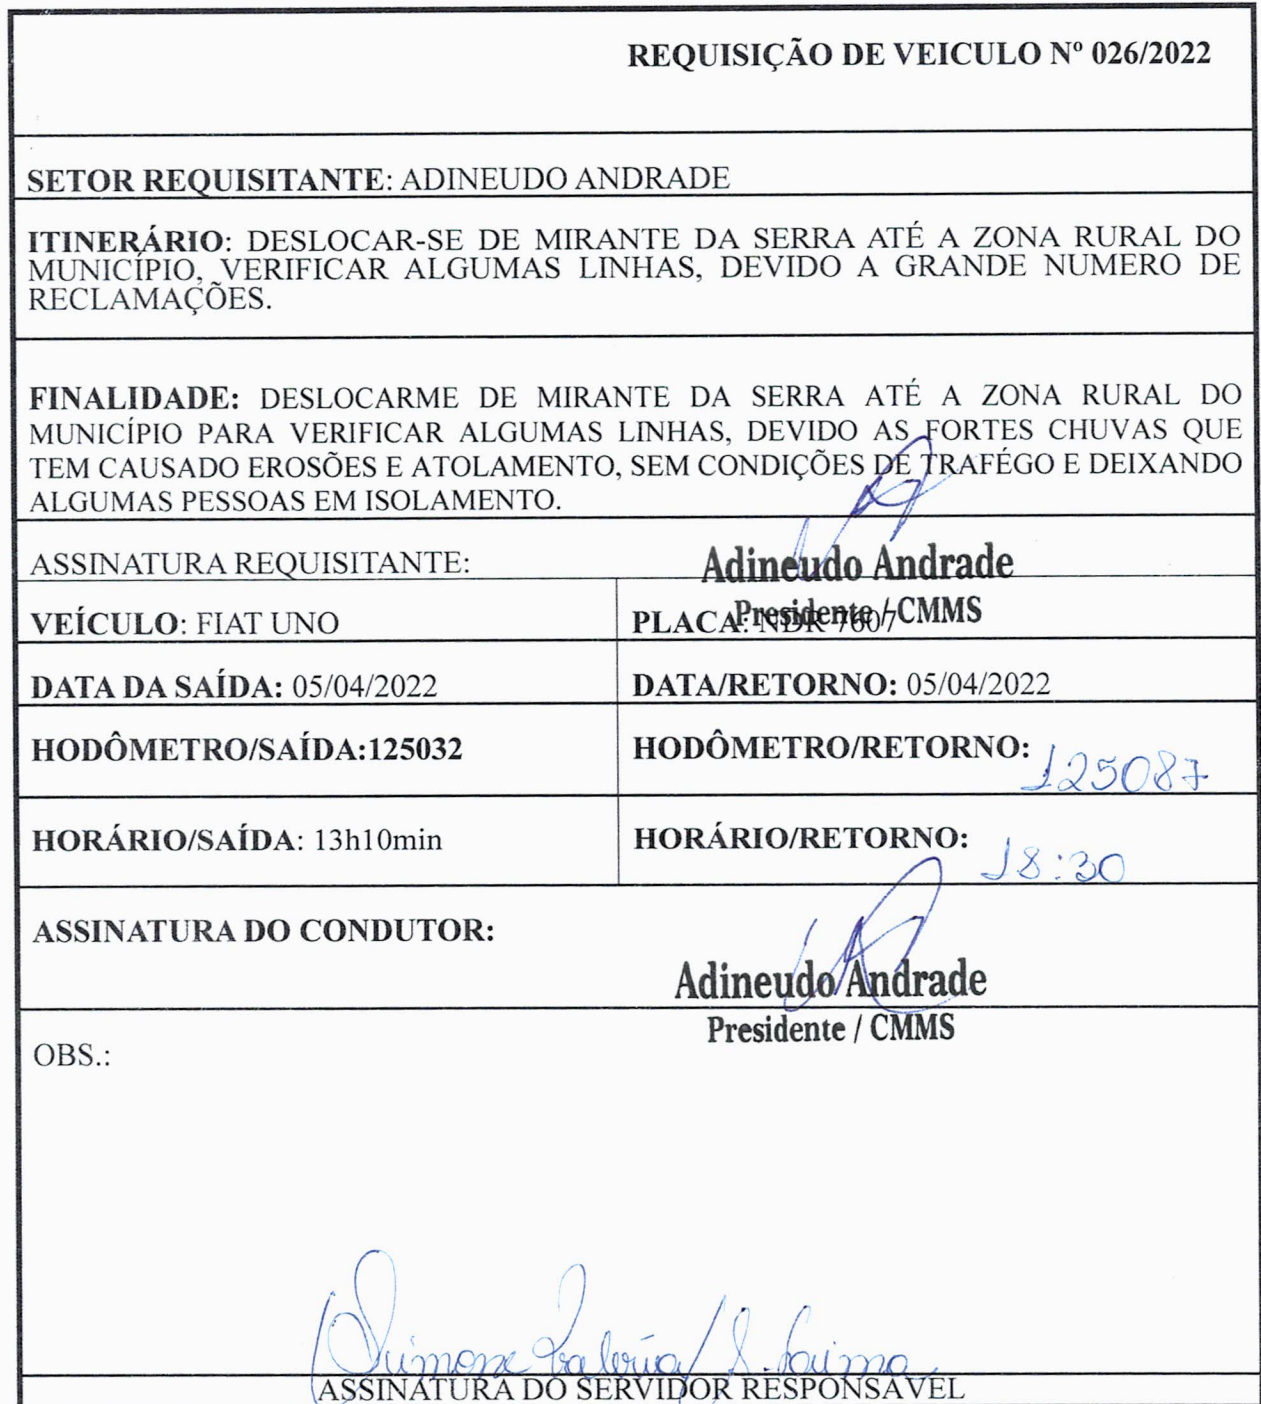 REQUISIÇÃO DE VEICULO Nº 026/2022
SETOR REQUISITANTE: ADINEUDO ANDRADE
ITINERÁRIO: DESLOCAR-SE DE MIRANTE DA SERRA ATÉ A ZONA RURAL DO
MUNICÍPIO, VERIFICAR ALGUMAS LINHAS, DEVIDO A GRANDE NUMERO DE
RECLAMAÇÕES.
FINALIDADE: DESLOCARME DE MIRANTE DA SERRA ATÉ A ZONA RURAL DO
MUNICÍPIO PARA VERIFICAR ALGUMAS LINHAS, DEVIDO AS FORTES CHUVAS QUE
TEM CAUSADO EROSÕES E ATOLAMENTO, SEM CONDIÇÕES DE TRAFÉGO E DEIXANDO
ALGUMAS PESSOAS EM ISOLAMENTO.
ASSINATURA REQUISITANTE:
Adineudo Andrade
Presidente / CMMS
VEÍCULO: FIAT UNO
PLACA: NDR 7607
DATA DA SAÍDA: 05/04/2022
DATA/RETORNO: 05/04/2022
HODÔMETRO/SAÍDA:125032
HODÔMETRO/RETORNO: 125087
HORÁRIO/SAÍDA: 13h10min
HORÁRIO/RETORNO: 18:30
ASSINATURA DO CONDUTOR:
Adineudo Andrade
Presidente / CMMS
OBS.:
Simone
ASSINATURA DO SERVIDOR RESPONSAVEL